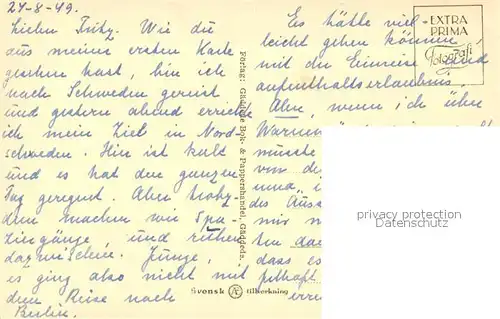 24-8-49.
Lieber Fritz. Wie du
aus meiner ersten Karte
gesehen hast, bin ich
nach Schweden gereist
und gestern abend erreichte
ich mein Ziel in Nord-
schweden. Hier ist kalt
und es hat den ganzen
Tag geregnet. Aber trotz-
dem machen wir Spa-
ziergänge, und ruhen
dazwischen. Junge,
es ging also nicht mit
der Reise nach
Berlin.
Förlag: Gäddede Bok- & Pappershandel, Gäddede.
Svensk tillverkning
Es hätte viel-
leicht gehen können,
mit der Einreise und
aufenthaltserlaubnis.
Aber, wenn ich über
Warnemünde
musste
von de
und "i
des Auss
mir n
ten das
dass es
gehoft
erre
EXTRA
PRIMA
Fotografi
privacy protection
Datenschutz